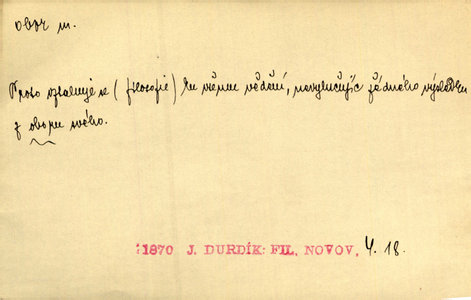 obor m.
Proto vztahuje se (filosofie) ku všemu vědění, nevylučujíc žádného výsledku
z oboru svého.
1870 J. DURDÍK: FIL. NOVOV. 4. 18.